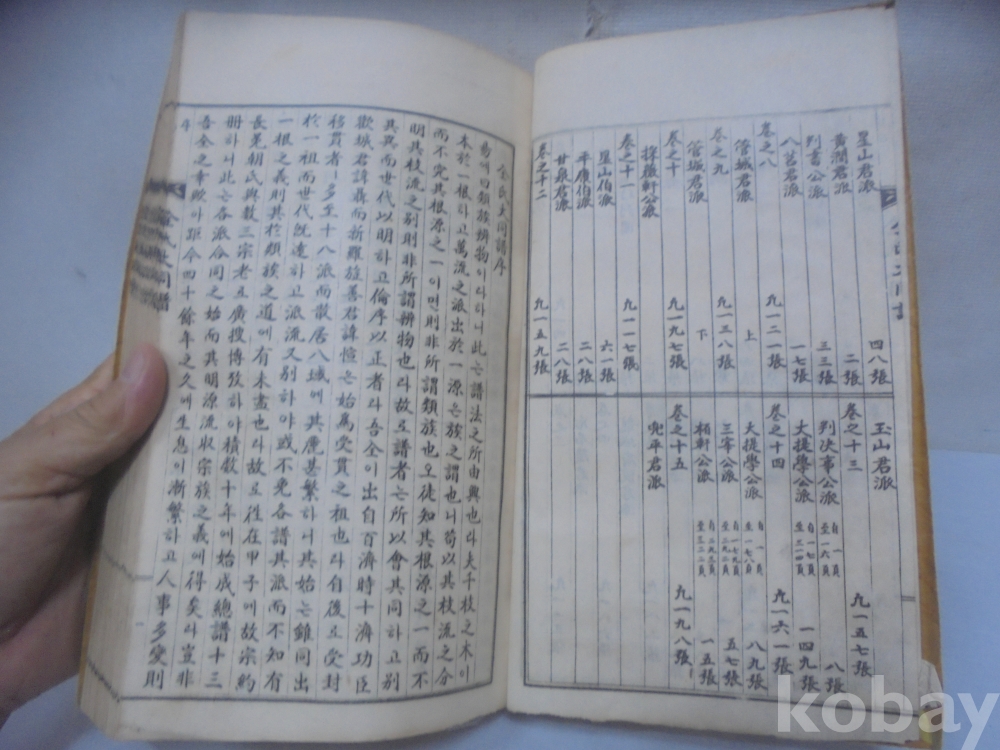 星山君派 四八張
黃澗君派 二張
判書公派 三三張
八莒君派 一七張
卷之八 九一二一張
管城君派 上
卷之九 九一三八張
管城君派 下
卷之十 九一九七張
採薇軒公派
卷之十一 九一一七張
星山伯派 六一張
平康伯派 二八張
甘泉君派 二八張
卷之十二 九一五九張
玉山君派
卷之十三 九一五七張
判决事公派 八張
大提學公派 一四九張
卷之十四 九一六一張
大提學公派 自一頁 至一七八頁 八九張
三宰公派 五七張
栢軒公派 一五張
卷之十五 九一九八張
兜平君派
全氏大同譜序
易에曰類族辨物이라하니此는譜法之所由興也라夫千枝之木이
本於一根하고萬流之派出於一源는族之謂也니苟以其枝流之分
而不究其根源之一이면則非所謂類族也오徒知其根源之一而不
明其枝流之別則非所謂辨物也라故로譜者는所以會其同하고別
其異而世代以明하고倫序以正者라吾全이出自百濟時十濟功臣
歡城君諱聶而新羅旌善君諱愃은始爲受貫之祖也라自後로受封
移貫者ㅣ多至十八派而散居八域에其麗甚繁하니其始는雖同出
於一祖而世代旣遠하고派流又別하야或不免各譜其派而不知有
一根之義則其於類族之道에有未盡也라故로徃在甲子에故宗約
長冕朝氏與數三宗老로廣搜博攷하야積數十年에始成總譜十三
冊하니此는各派合同之始而其明源流收宗族之義에得矣라豈非
吾全之幸歟아距今四十餘年之久에生息이漸繁하고人事多變則
全氏大同譜